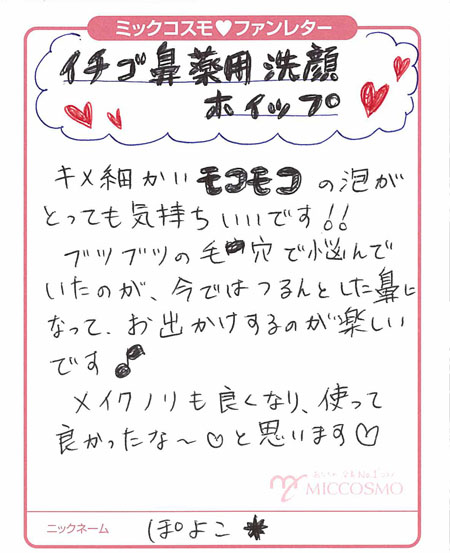 ミックコスモ♥ファンレター
イチゴ鼻薬用洗顔
ホイップ
キメ細かいモコモコの泡が
とっても気持ちいいです!!
ブツブツの毛穴で悩んで
いたのが、今ではつるんとした鼻に
なって、お出かけするのが楽しい
です♪
メイクノリも良くなり、使って
良かったな〜♡と思います♡
MICCOSMO
ニックネーム ぽよこ*